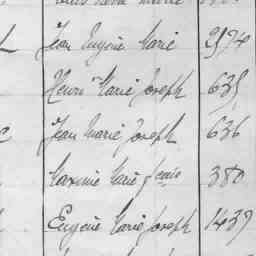 Jean Eugène Marie 2974
Henri Marie Joseph 635
Jean Marie Joseph 636
Maxime Marie Jean 380
Eugène Marie Joseph 1437